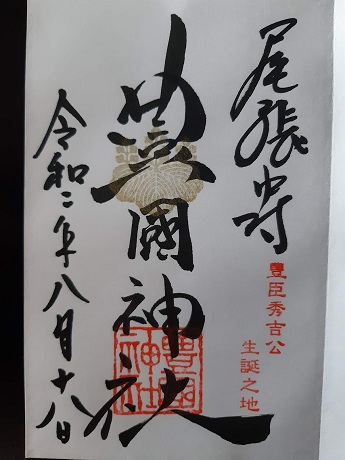 尾張中村
豐臣秀吉公
生誕之地
豊國神社
豐國
神社
令和二年八月十八日